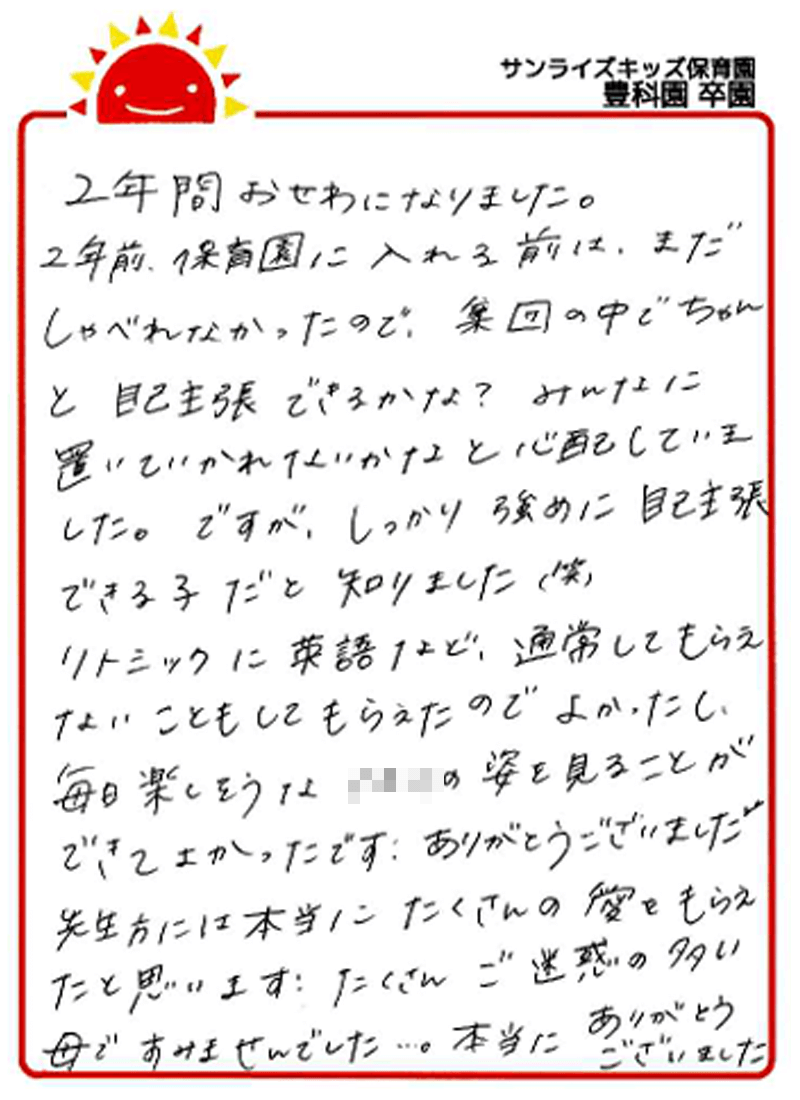 サンライズキッズ保育園
豊科園 卒園
2年間おせわになりました。
2年前、保育園に入れる前は、まだ
しゃべれなかったので、集団の中でちゃん
と自己主張できるかな？みんなに
置いていかれないかなと心配していま
した。ですが、しっかり強めに自己主張
できる子だと知りました（笑）
リトミックに英語など、通常してもらえ
ないこともしてもらえたのでよかったし、
毎日楽しそうな の姿を見ることが
できてよかったです：ありがとうございました
先生方には本当にたくさんの愛をもらえ
たと思います：たくさんご迷惑の多い
母ですみませんでした…。本当にありがとう
ございました